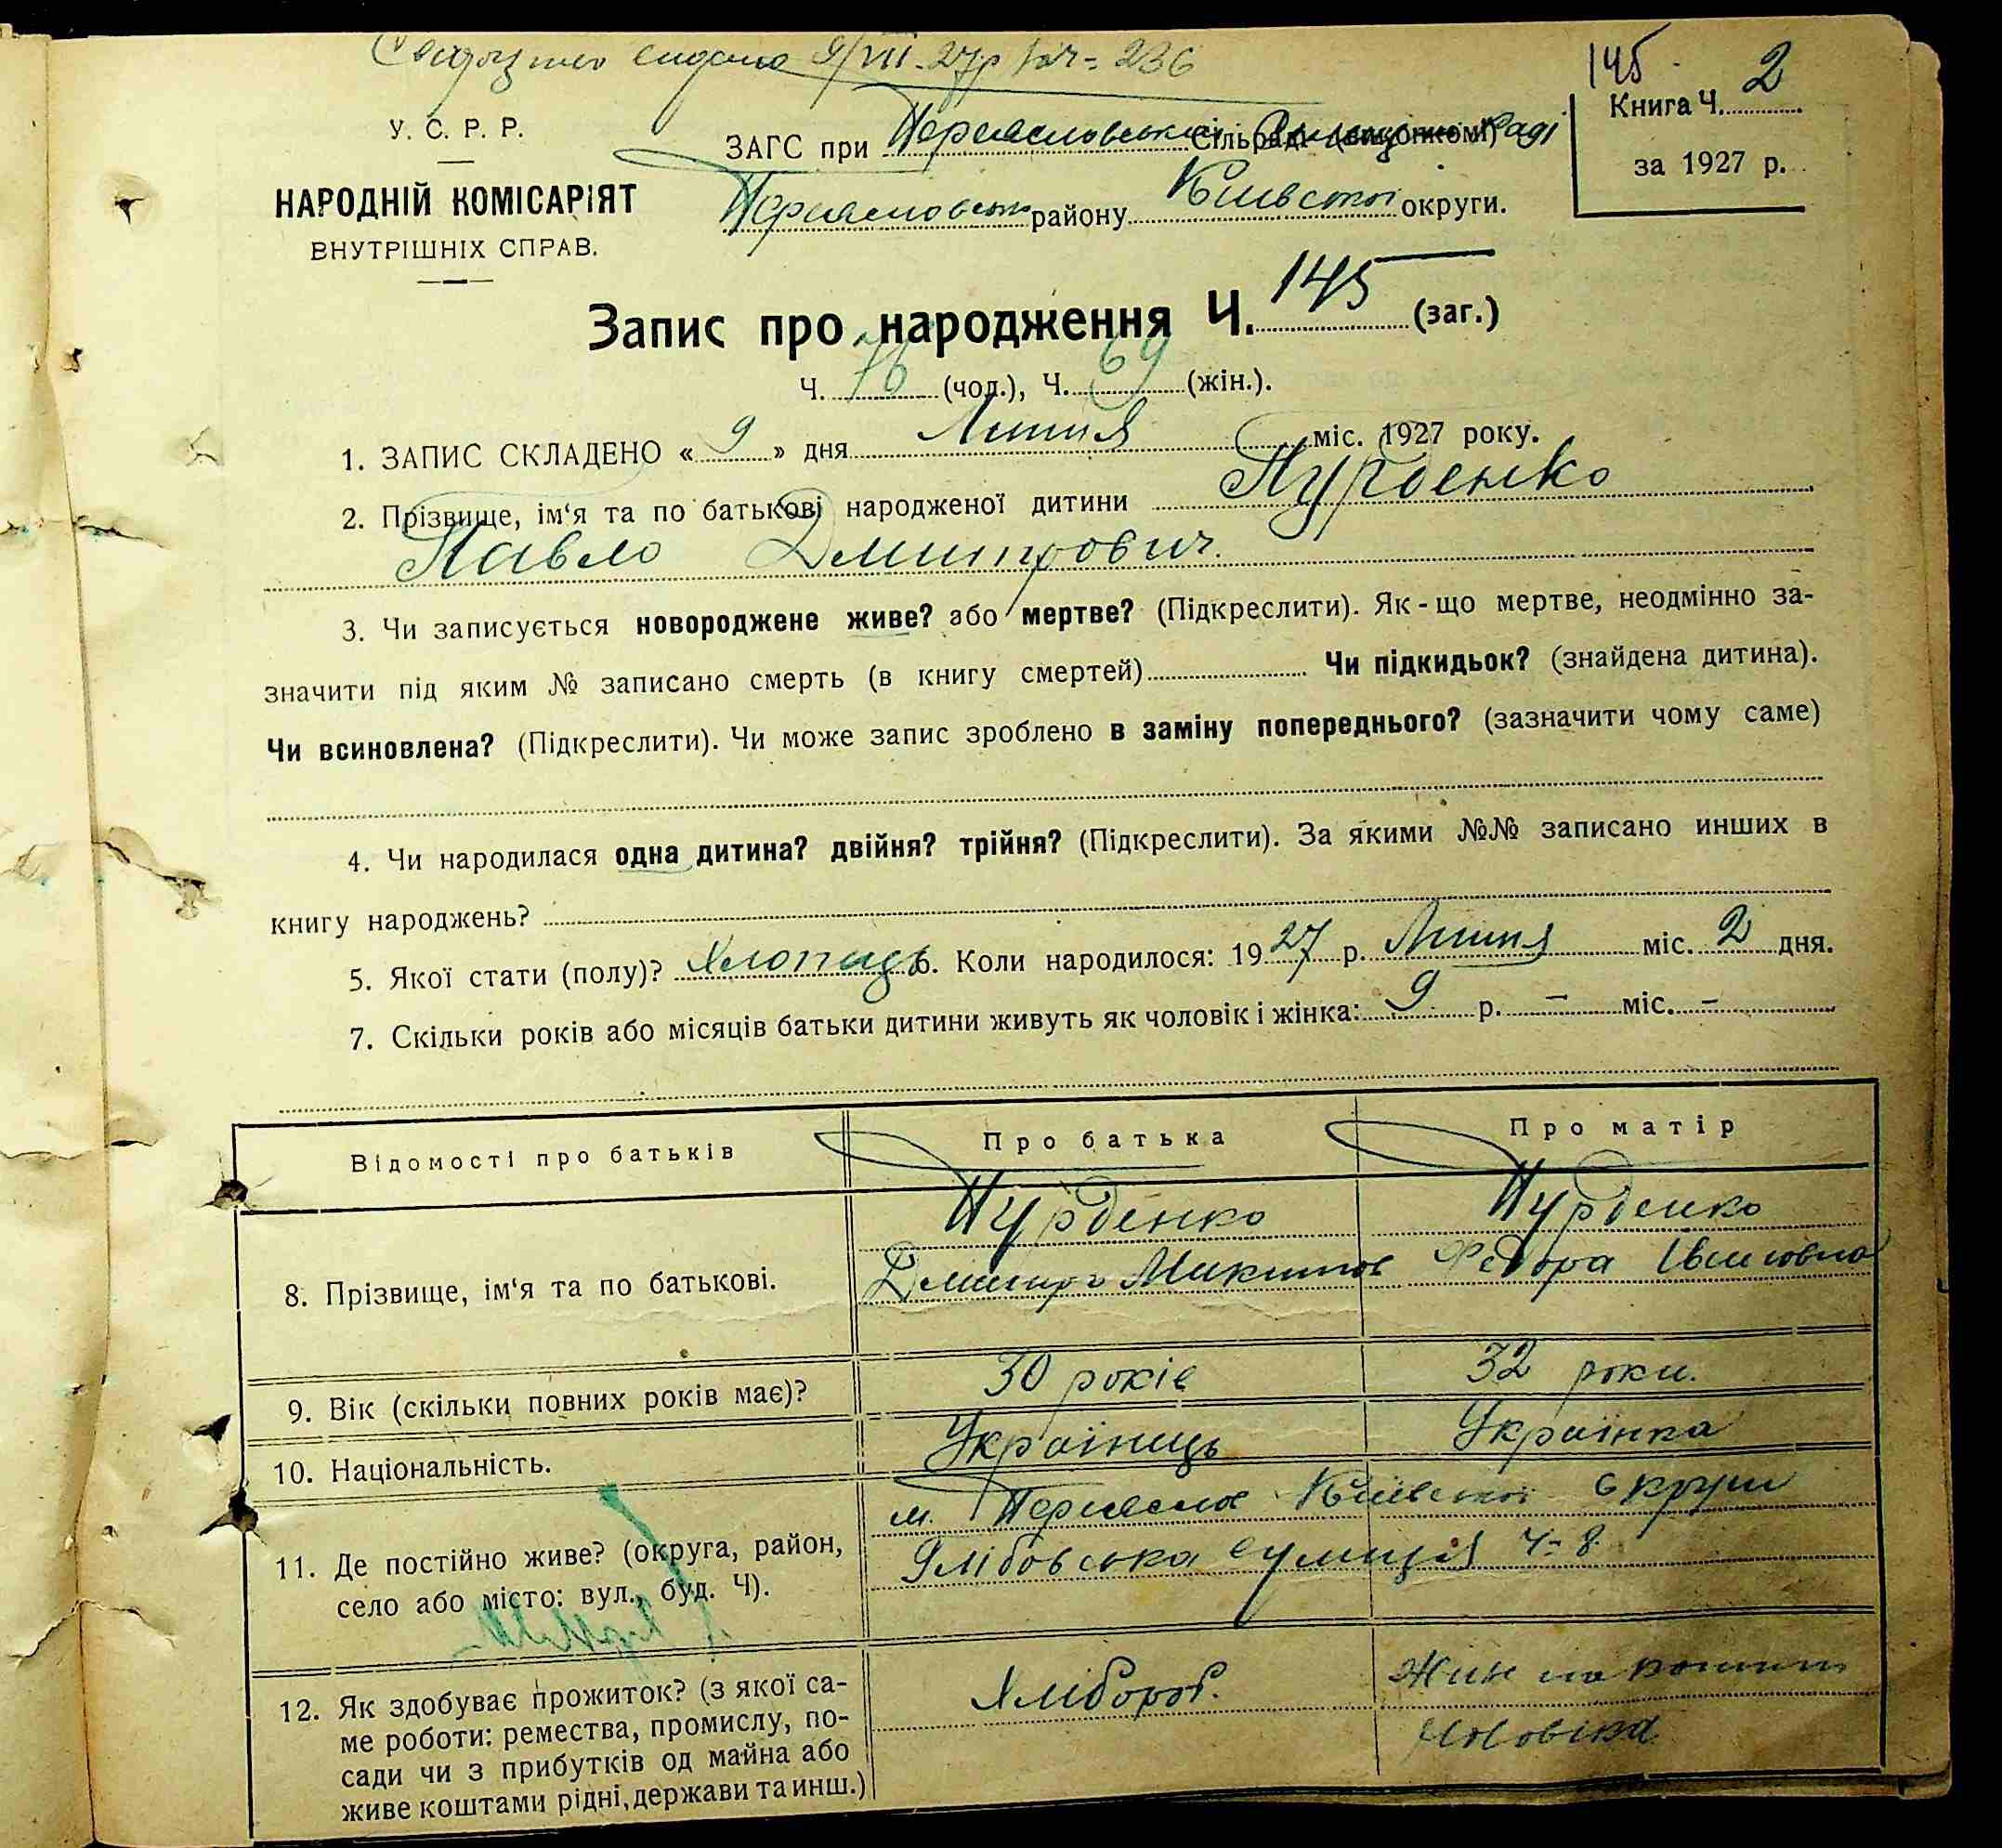 видано 9/VII-27р ч= 236
145
У. С. Р. Р.
ЗАГС при Переяславській Сільраді (виконкомі) Раді
Книга Ч. 2
за 1927 р.
НАРОДНІЙ КОМІСАРІЯТ
Переяславськ району Київської округи.
ВНУТРІШНІХ СПРАВ.
Запис про народження Ч. 145 (заг.)
Ч. 76 (чол.), Ч. 69 (жін.).
1. ЗАПИС СКЛАДЕНО « 9 » дня Липня міс. 1927 року.
2. Прізвище, ім'я та по батькові народженої дитини Пурденко
Павло Дмитрович.
3. Чи записується новороджене живе? або мертве? (Підкреслити). Як-що мертве, неодмінно за-
значити під яким № записано смерть (в книгу смертей) Чи підкидьок? (знайдена дитина).
Чи всиновлена? (Підкреслити). Чи може запис зроблено в заміну попереднього? (зазначити чому саме)
4. Чи народилася одна дитина? двійня? трійня? (Підкреслити). За якими №№ записано инших в
книгу народжень?
5. Якої стати (полу)? Хлопець 6. Коли народилося: 1927 р. Липня міс. 2 дня.
7. Скільки років або місяців батьки дитини живуть як чоловік і жінка: 9 р. – міс. –
Відомості про батьків
Про батька
Про матір
8. Прізвище, ім'я та по батькові.
Пурденко
Дмитро Микитов
Пурденко
Федора Івановна
9. Вік (скільки повних років має)?
30 років
32 роки.
10. Національність.
Українець
Українка
11. Де постійно живе? (округа, район,
село або місто: вул., буд. Ч).
м. Переяслов Київської округи
вулиця Ч= 8.
12. Як здобуває прожиток? (з якої са-
ме роботи: ремества, промислу, по-
сади чи з прибутків од майна або
живе коштами рідні, держави та инш.)
Хлібороб.
Живе на кошти
чоловіка